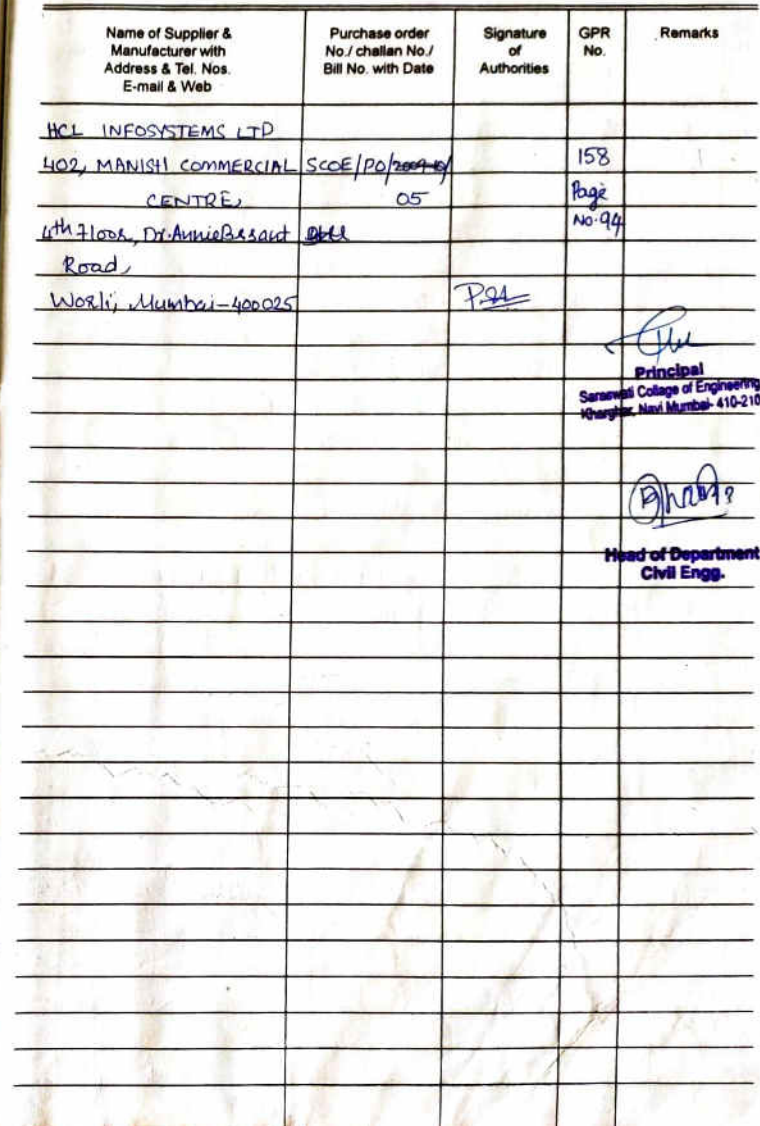 Name of Supplier & Manufacturer with Address & Tel. Nos. E-mail & Web
Purchase order No./ challan No./ Bill No. with Date
Signature of Authorities
GPR No.
Remarks
HCL INFOSYSTEMS LTD
402, MANISH COMMERCIAL SCOE/PO/2009-10/ 158
CENTRE, 05 Page
4th Floor, Dr. Annie Besant No. 94
Road,
Worli, Mumbai-400025
Principal
Saraswati Collage of Engineering
Kharghar, Navi Mumbai- 410-210
Head of Department
Civil Engg.